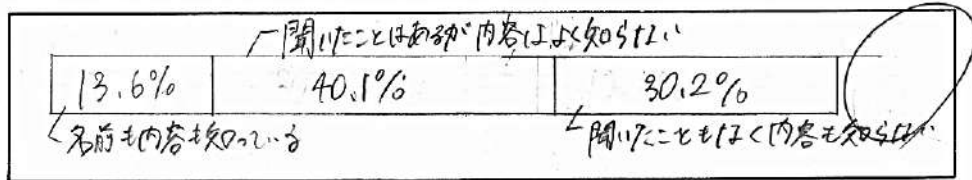 聞いたことはあるが内容はよく知らない
13.6% 40.1% 30.2%
名前も内容も知っている 聞いたこともなく内容も知らない